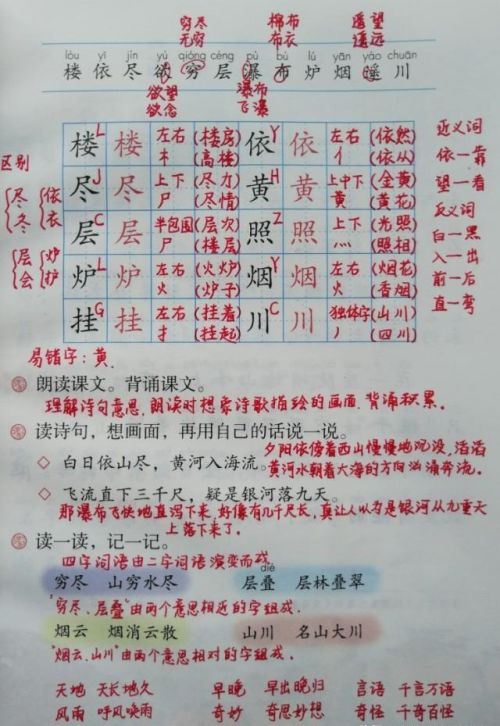 穷尽 棉布 遥望
无穷 布衣 遥远
lóu yī jìn yù qióng céng pù bù lú yān yáo chuān
楼 依 尽 欲 穷 层 瀑 布 炉 烟 遥 川
欲望 瀑布
欲念 飞瀑
楼 L 楼 左右 木 (楼房) (高楼) 依 Y 依 左右 亻 (依然) (依从)
尽 J 尽 上下 尸 (尽力) (尽情) 黄 H 黄 上中下 黄 (金黄) (黄花)
层 C 层 半包围 尸 (层次) (楼层) 照 Z 照 上下 灬 (光照) (照相)
炉 L 炉 左右 火 (火炉) (炉子) 烟 Y 烟 左右 火 (烟花) (香烟)
挂 G 挂 左右 扌 (挂着) (挂起) 川 C 川 独体字 丿 (山川) (四川)
区别
尽 依
冬 衣
层 炉
会 护
近义词
依—靠
望—看
反义词
白—黑
入—出
前—后
直—弯
易错字:黄.
朗读课文。背诵课文。
理解诗句意思,朗读时想象诗歌描绘的画面.背诵积累。
读诗句,想画面,再用自己的话说一说。
夕阳依傍着西山慢慢地沉没,滔滔
◇ 白日依山尽,黄河入海流。
黄河水朝着大海的方向汹涌奔流。
◇ 飞流直下三千尺,疑是银河落九天。
那瀑布飞快地直泻下来,好像有几千尺长,真让人以为是银河从九重天
上落下来了.
读一读,记一记。
四字词语由二字词语演变而成
dié
穷尽 山穷水尽 层叠 层林叠翠
"穷尽、层叠"由两个意思相近的字组成.
烟云 烟消云散 山川 名山大川
"烟云、山川"由两个意思相对的字组成.
天地 天长地久 早晚 早出晚归 言语 千言万语
风雨 呼风唤雨 奇妙 奇思妙想 奇怪 千奇百怪